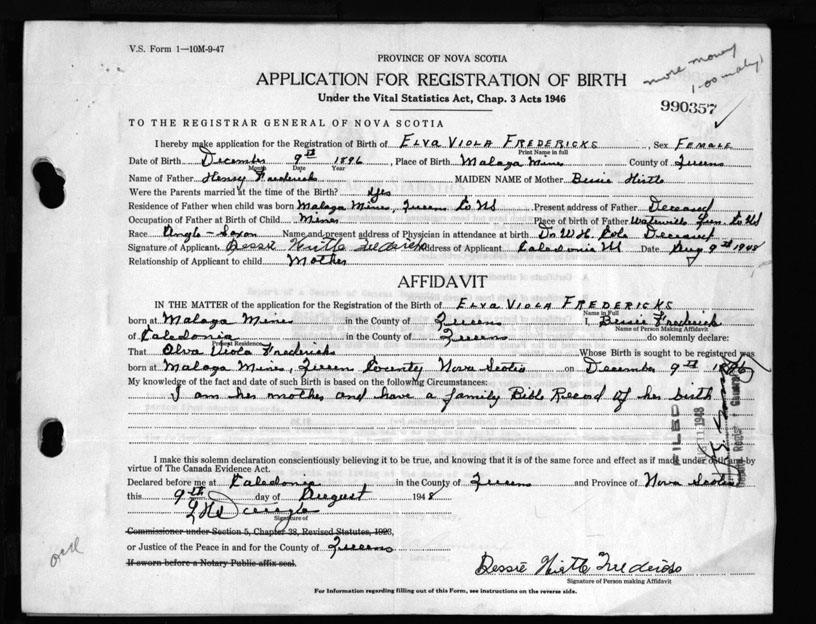 V.S. Form 1—10M-9-47
PROVINCE OF NOVA SCOTIA
more money
1.00
APPLICATION FOR REGISTRATION OF BIRTH
Under the Vital Statistics Act, Chap. 3 Acts 1946
990357
TO THE REGISTRAR GENERAL OF NOVA SCOTIA
I hereby make application for the Registration of Birth of ELVA VIOLA FREDERICKS, Sex FEMALE
Print Name in full
Date of Birth December 9th 1896, Place of Birth Malaga Mines County of Queens
Month Date Year
Name of Father Henry Frederick MAIDEN NAME of Mother Bessie Hirtle
Were the Parents married at the time of the Birth? Yes
Residence of Father when child was born Malaga Mines, Queens Co NS Present address of Father Deceased
Occupation of Father at Birth of Child Miner Place of birth of Father Waterville Lun. Co NS
Race Anglo-Saxon Name and present address of Physician in attendance at birth Dr W.H. Cole Deceased
Signature of Applicant Bessie Hirtle Frederick Address of Applicant Caledonia NS Date Aug 9th 1948
Relationship of Applicant to child Mother
AFFIDAVIT
IN THE MATTER of the application for the Registration of the Birth of ELVA VIOLA FREDERICKS
Name in Full
born at Malaga Mines in the County of Queens I, Bessie Frederick
Name of Person Making Affidavit
of Caledonia in the County of Queens do solemnly declare:
Present Residence
That Elva Viola Fredericks Whose Birth is sought to be registered was
born at Malaga Mines, Queens County Nova Scotia on December 9th 1896
My knowledge of the fact and date of such Birth is based on the following Circumstances:
I am her mother and have a family Bible Record of her birth
FILED
11 1948
I make this solemn declaration conscientiously believing it to be true, and knowing that it is of the same force and effect as if made under oath and by
virtue of The Canada Evidence Act.
Declared before me at Caledonia in the County of Queens and Province of Nova Scotia
this 9th day of August 1948
Signature of
Commissioner under Section 5, Chapter 38, Revised Statutes, 1923,
or Justice of the Peace in and for the County of Queens
If sworn before a Notary Public affix seal.
Bessie Hirtle Fredericks
Signature of Person making Affidavit
For Information regarding filling out of this Form, see instructions on the reverse side.